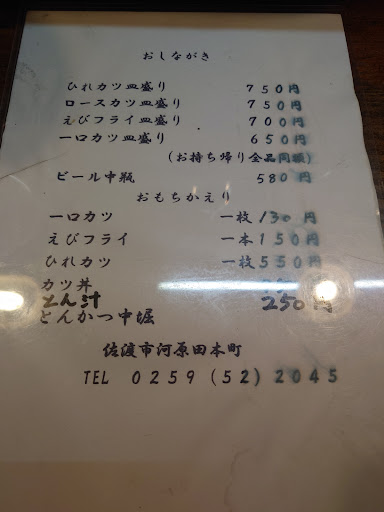 おしながき
ひれカツ皿盛り 750円
ロースカツ皿盛り 750円
えびフライ皿盛り 700円
一口カツ皿盛り 650円
(お持ち帰り全品同額)
ビール中瓶 580円
おもちかえり
一口カツ 一枚130円
えびフライ 一本150円
ひれカツ 一枚550円
カツ丼
とん汁 250円
とんかつ中堀
佐渡市河原田本町
TEL 0259(52)2045